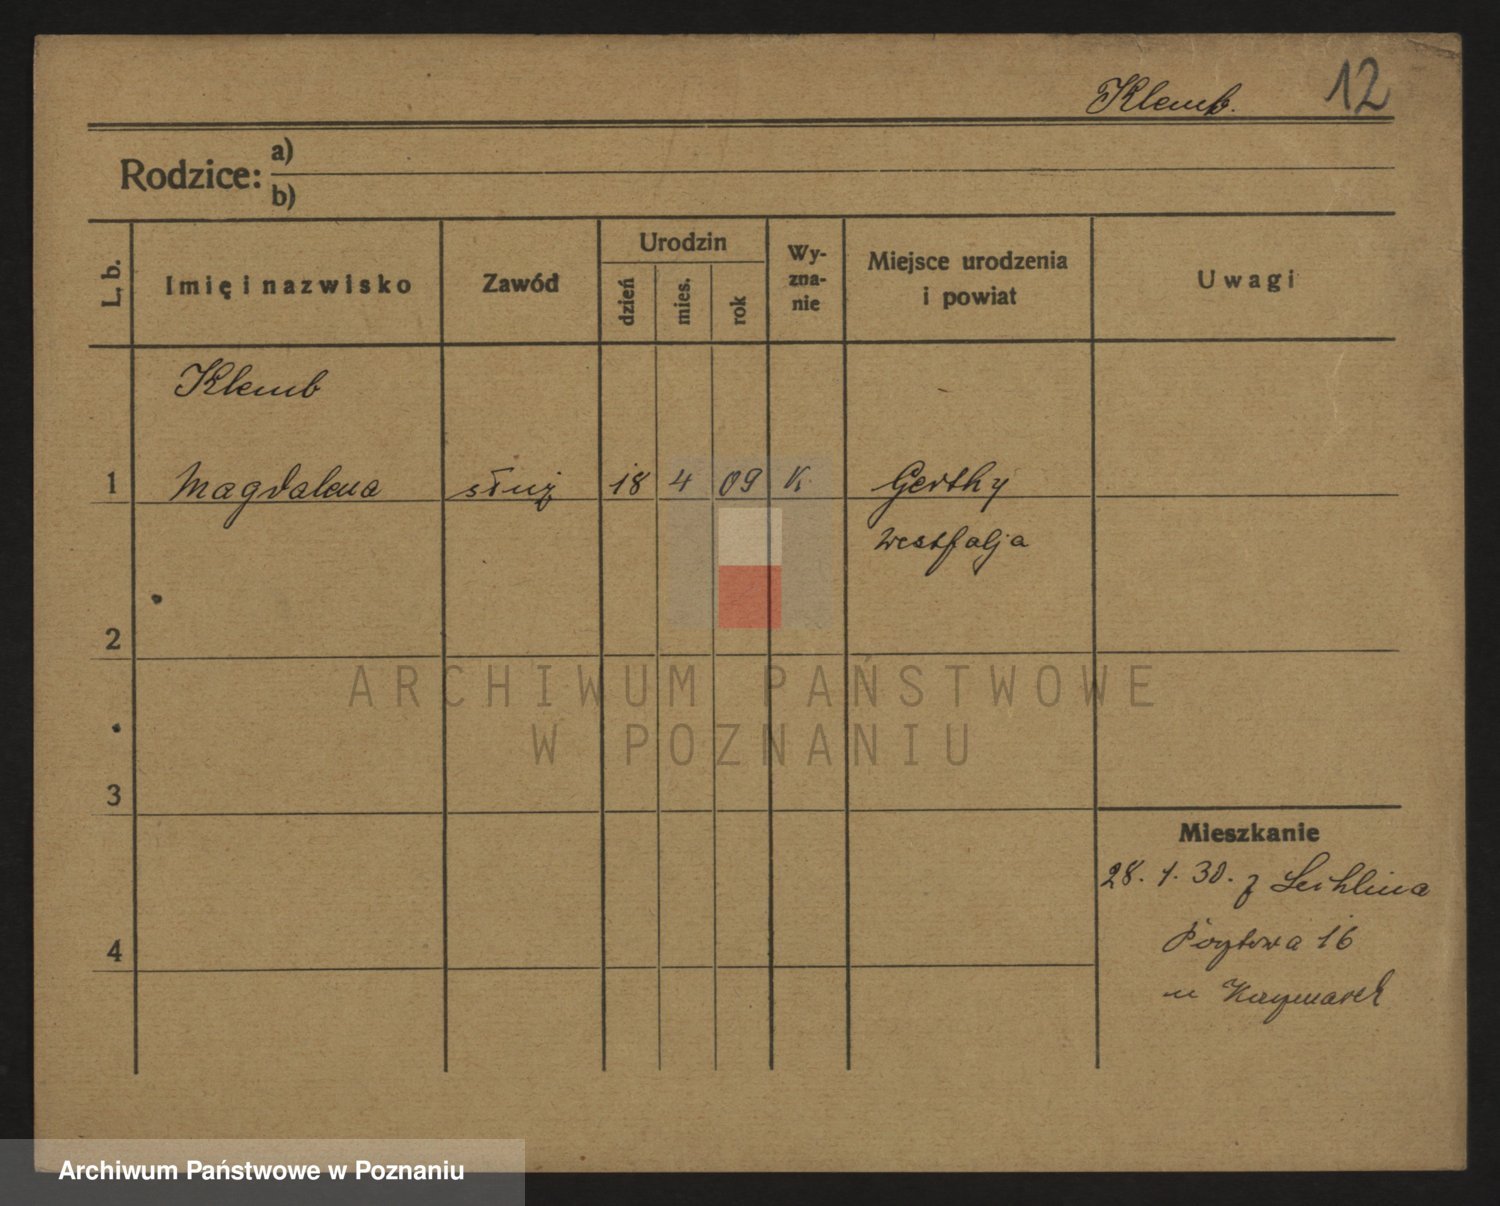 Klemb. 12
Rodzice: a)
b)
L. b. Imię i nazwisko Zawód Urodzin dzień mies. rok Wy-zna-nie Miejsce urodzenia i powiat Uwagi
Klemb
1 Magdalena służ 18 4 09 K. Gerthy
Westfalja
2
ARCHIWUM PAŃSTWOWE
W POZNANIU
3
Mieszkanie
28. 1. 30. z
4 16
Archiwum Państwowe w Poznaniu